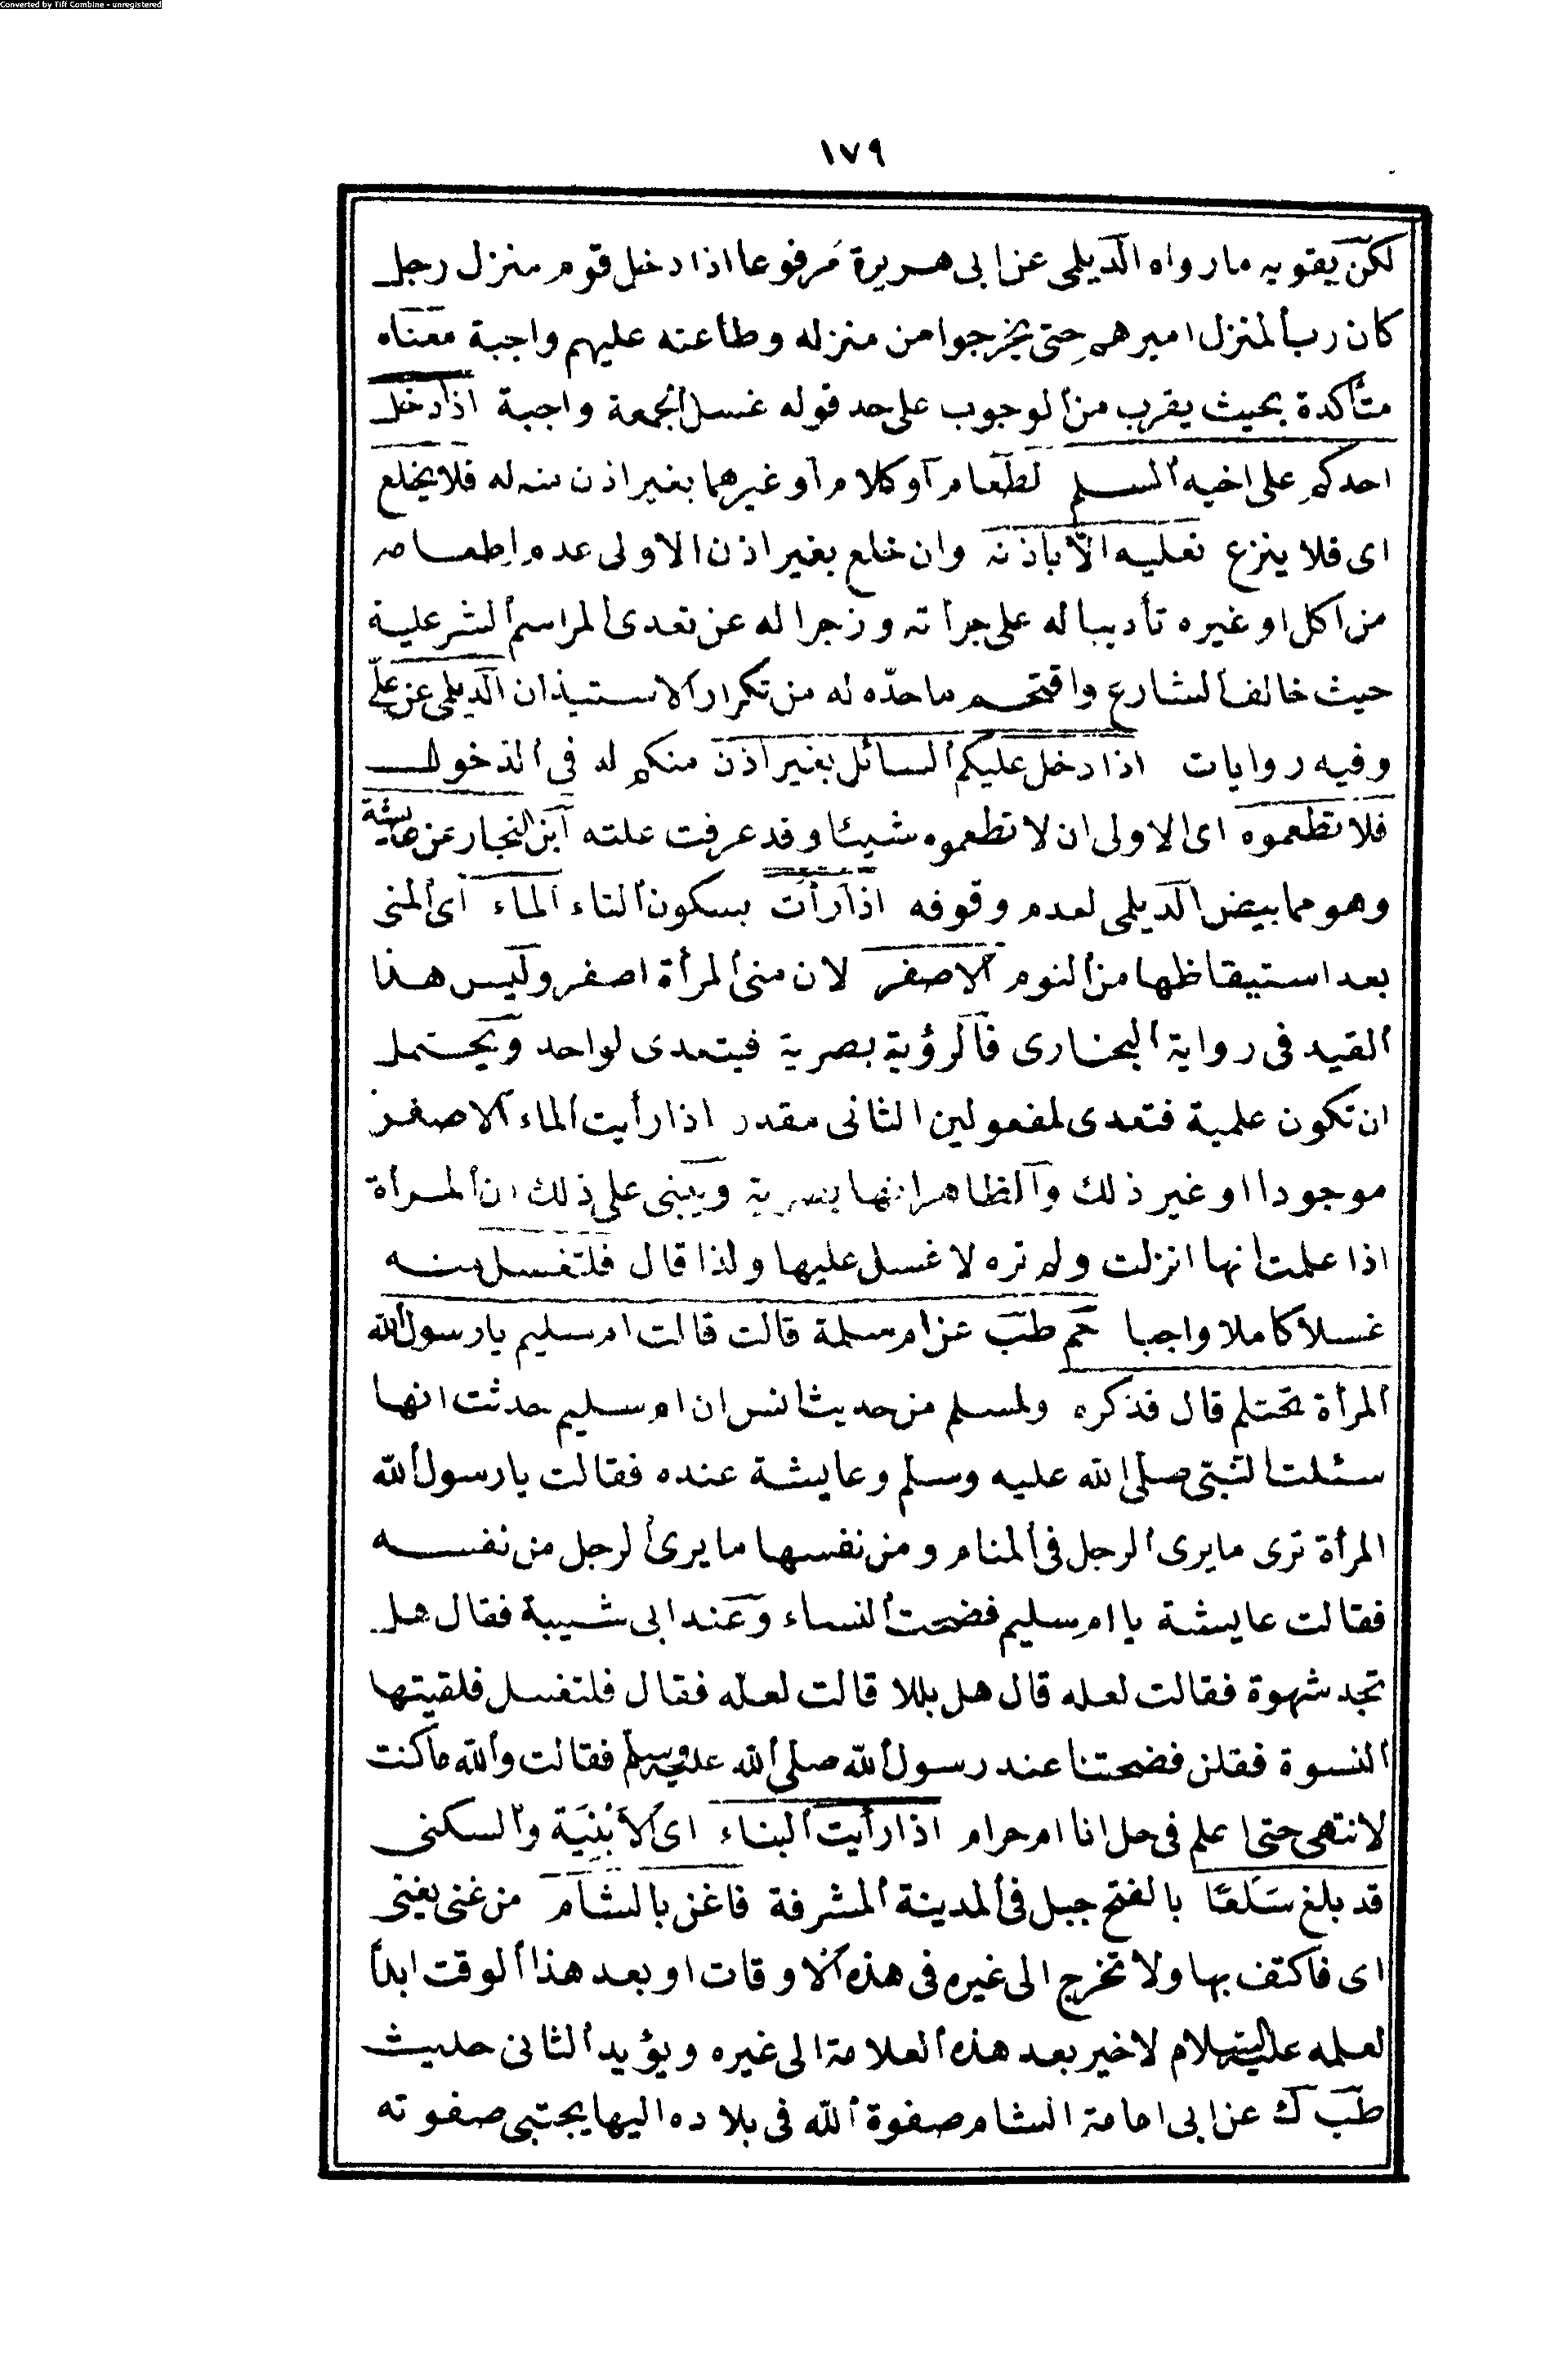 Converted by Tiff Combine - unregistered
١٧٩
لكن يقويه ما رواه الديلمى عن ابى هريرة مرفوعا اذا دخل قوم منزل رجل
كان رب المنزل اميرهم حتى يخرجوا من منزله وطاعته عليهم واجبة معناه
متأكدة بحيث يقرب من الوجوب على حد قوله غسل الجمعة واجبة اذا دخل
احدكم على اخيه المسلم لطعام او كلام او غيرهما بغير اذن منه له فلا يخلع
اى فلا ينزع نعليه الا باذنه وان خلع بغير اذن الاولى عدم اطعامه
من اكل او غيره تأديبا له على جرأته وزجرا له عن تعدى المراسم الشرعلية
حيث خالف الشارع واقتحم ما حده له من تكرار الاستيذان الديلمى عن على
وفيه روايات اذا دخل عليكم السائل بغير اذن منكم له فى الدخول
فلا تطعموه اى الاولى ان لا تطعموه شيئا وقد عرفت علته ابن النجار عن عايشة
وهو مما بيض الديلمى لعدم وقوفه اذا رأت بسكون التاء الماء اى المنى
بعد استيقاظها من النوم الاصفر لان منى المرأة اصفر وليس هذا
القيد فى رواية البخارى فالرؤية بصرية فيتعدى لواحد ويحتمل
ان تكون علمية فتعدى لمفعولين الثانى مقدر اذا رأيت الماء الاصفر
موجودا او غير ذلك والظاهر انها بصرية ويبنى على ذلك ان المرأة
اذا علمت انها انزلت ولم تره لا غسل عليها ولذا قال فلتغسل منه
غسلا كاملا واجبا حم طب عن ام سلمة قالت قالت ام سليم يا رسول الله
المرأة تحتلم قال فذكره ولمسلم من حديث انس ان ام سليم حدثت انها
سئلت النبى صلى الله عليه وسلم وعايشة عنده فقالت يا رسول الله
المرأة ترى ما يرى الرجل فى المنام ومن نفسها ما يرى الرجل من نفسه
فقالت عايشة يا ام سليم فضحت النساء وعند ابى شيبة فقال هل
تجد شهوة فقالت لعله قال هل بللا قالت لعله فقال فلتغسل فلقيتها
النسوة فقلن فضحتنا عند رسول الله صلى الله عليه وسلم فقالت والله ما كنت
لانتهى حتى اعلم فى حل انا ام حرام اذا رأيت البناء اى الأبنية والسكنى
قد بلغ سلعا بالفتح جبل فى المدينة المشرفة فاغن بالشام من غنى يغنى
اى فاكتف بها ولا تخرج الى غيره فى هذه الاوقات او بعد هذا الوقت ابدا
لعلمه عليه السلام لا خير بعد هذه العلامة الى غيره ويؤيد الثانى حديث
طب ك عن ابى امامة الشام صفوة الله فى بلاده اليها يجتبى صفوته